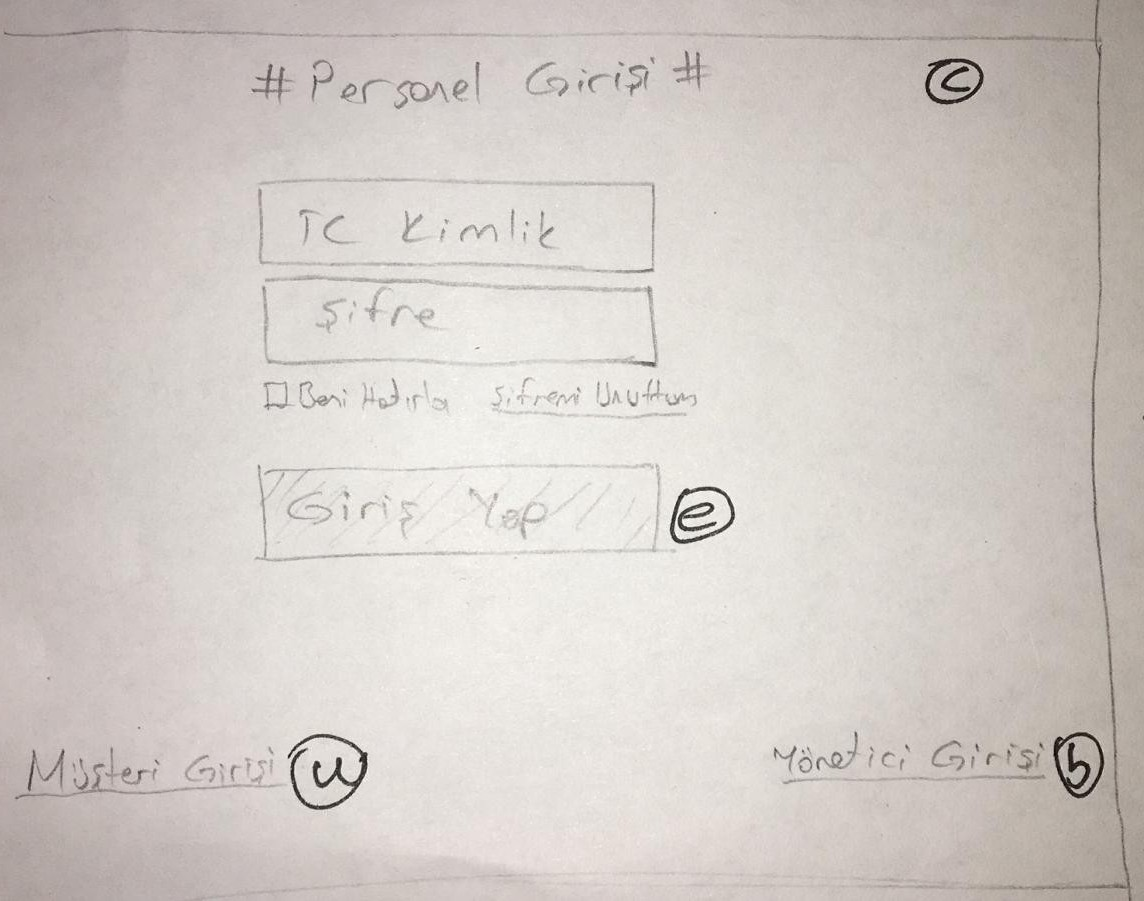 # Personel Girişi # C
TC Kimlik
Şifre
Beni Hatırla Şifremi Unuttum
Giriş Yap e
Müşteri Girişi u Yönetici Girişi b